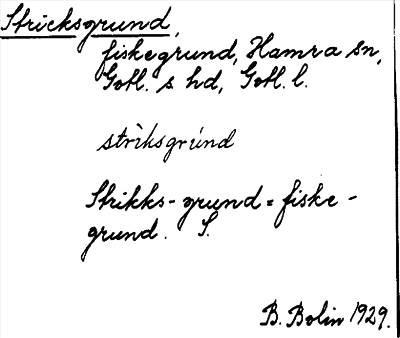 Stricksgrund,
fiskegrund, Hamra sn,
Gotl. s hd, Gotl. l.
strìksgrúnd
Strikks-grund = fiske-
grund. S.
B. Bolin 1929.